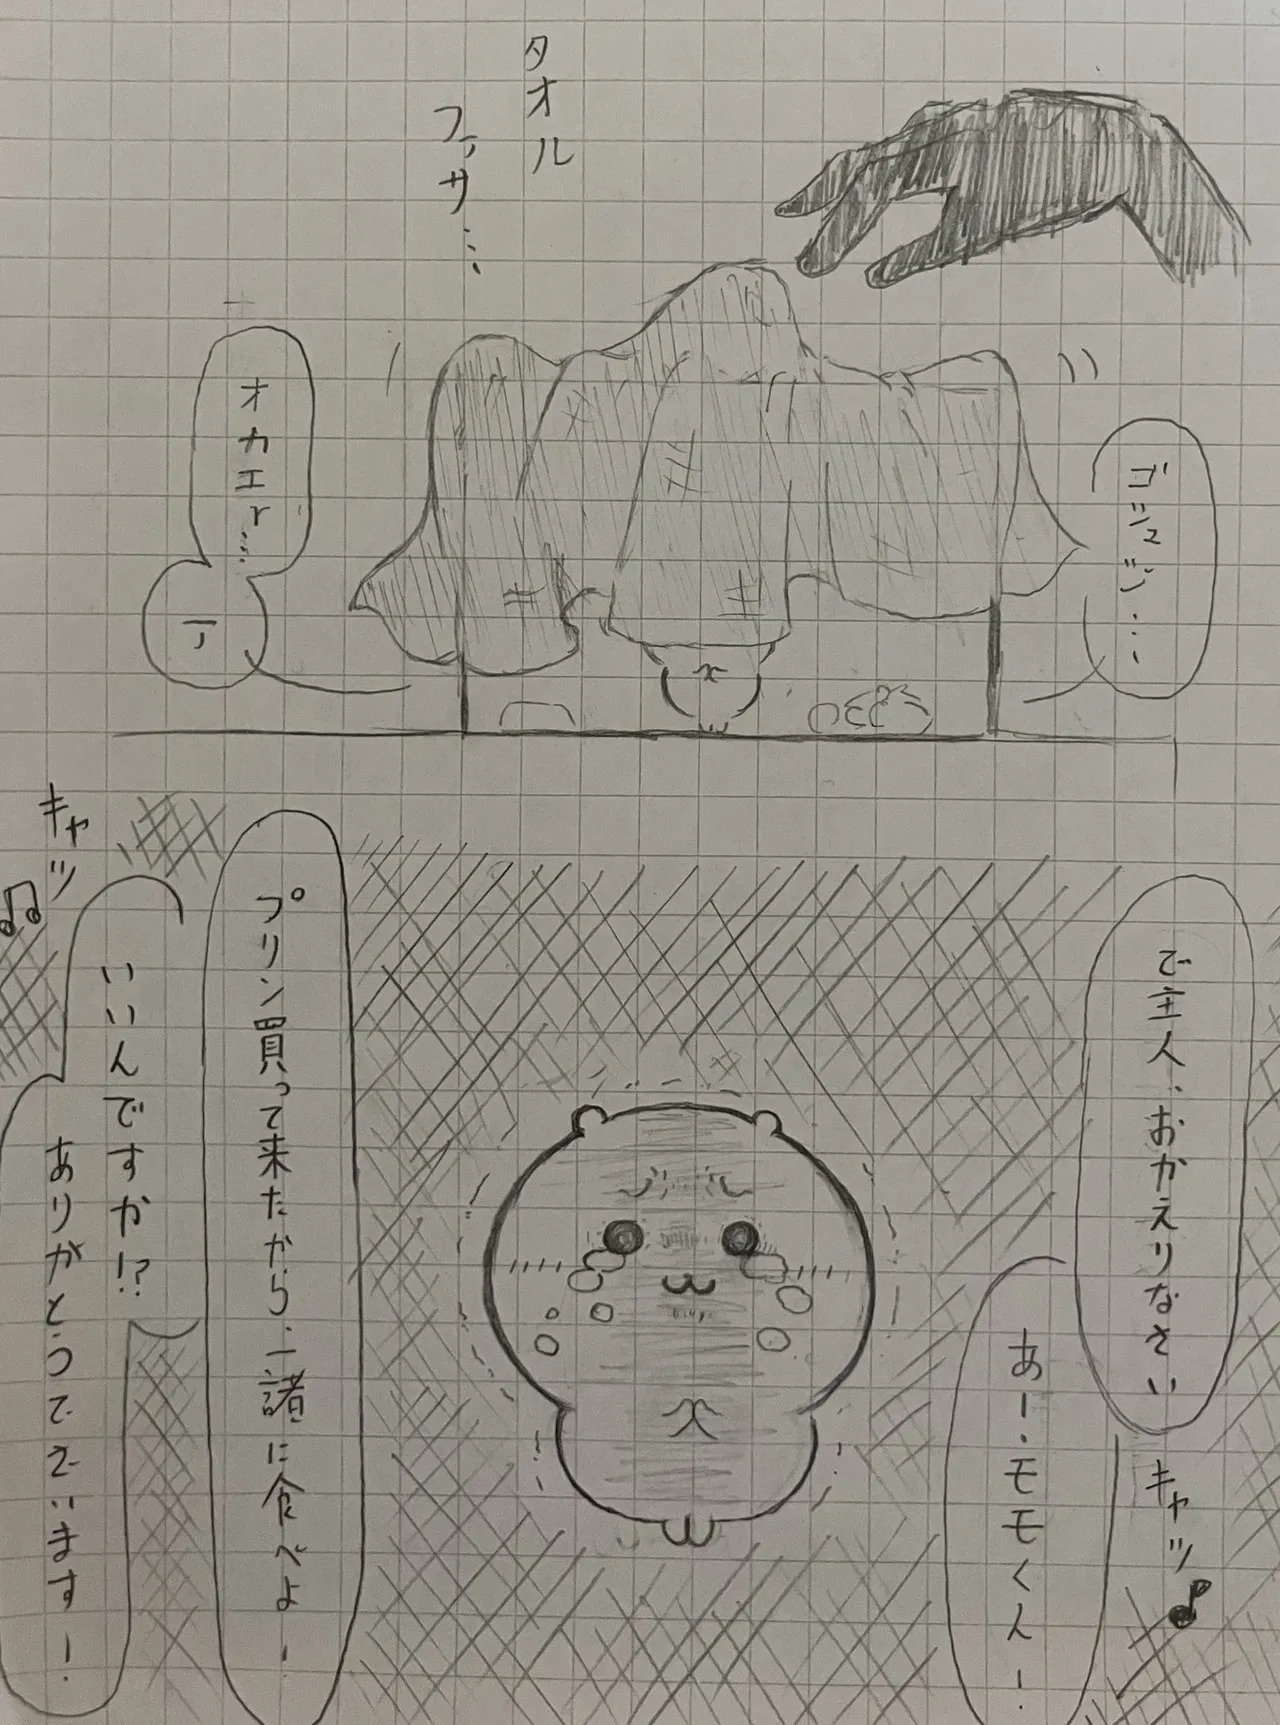 タオル
ファサ…
ゴシュジ…
オカエr…
ア
ご主人、おかえりなさい
キャッ♪
あー、モモくんー!
プリン買って来たから、一諸に食べよー!
キャッ♫
いいんですか!?
ありがとうございますー!